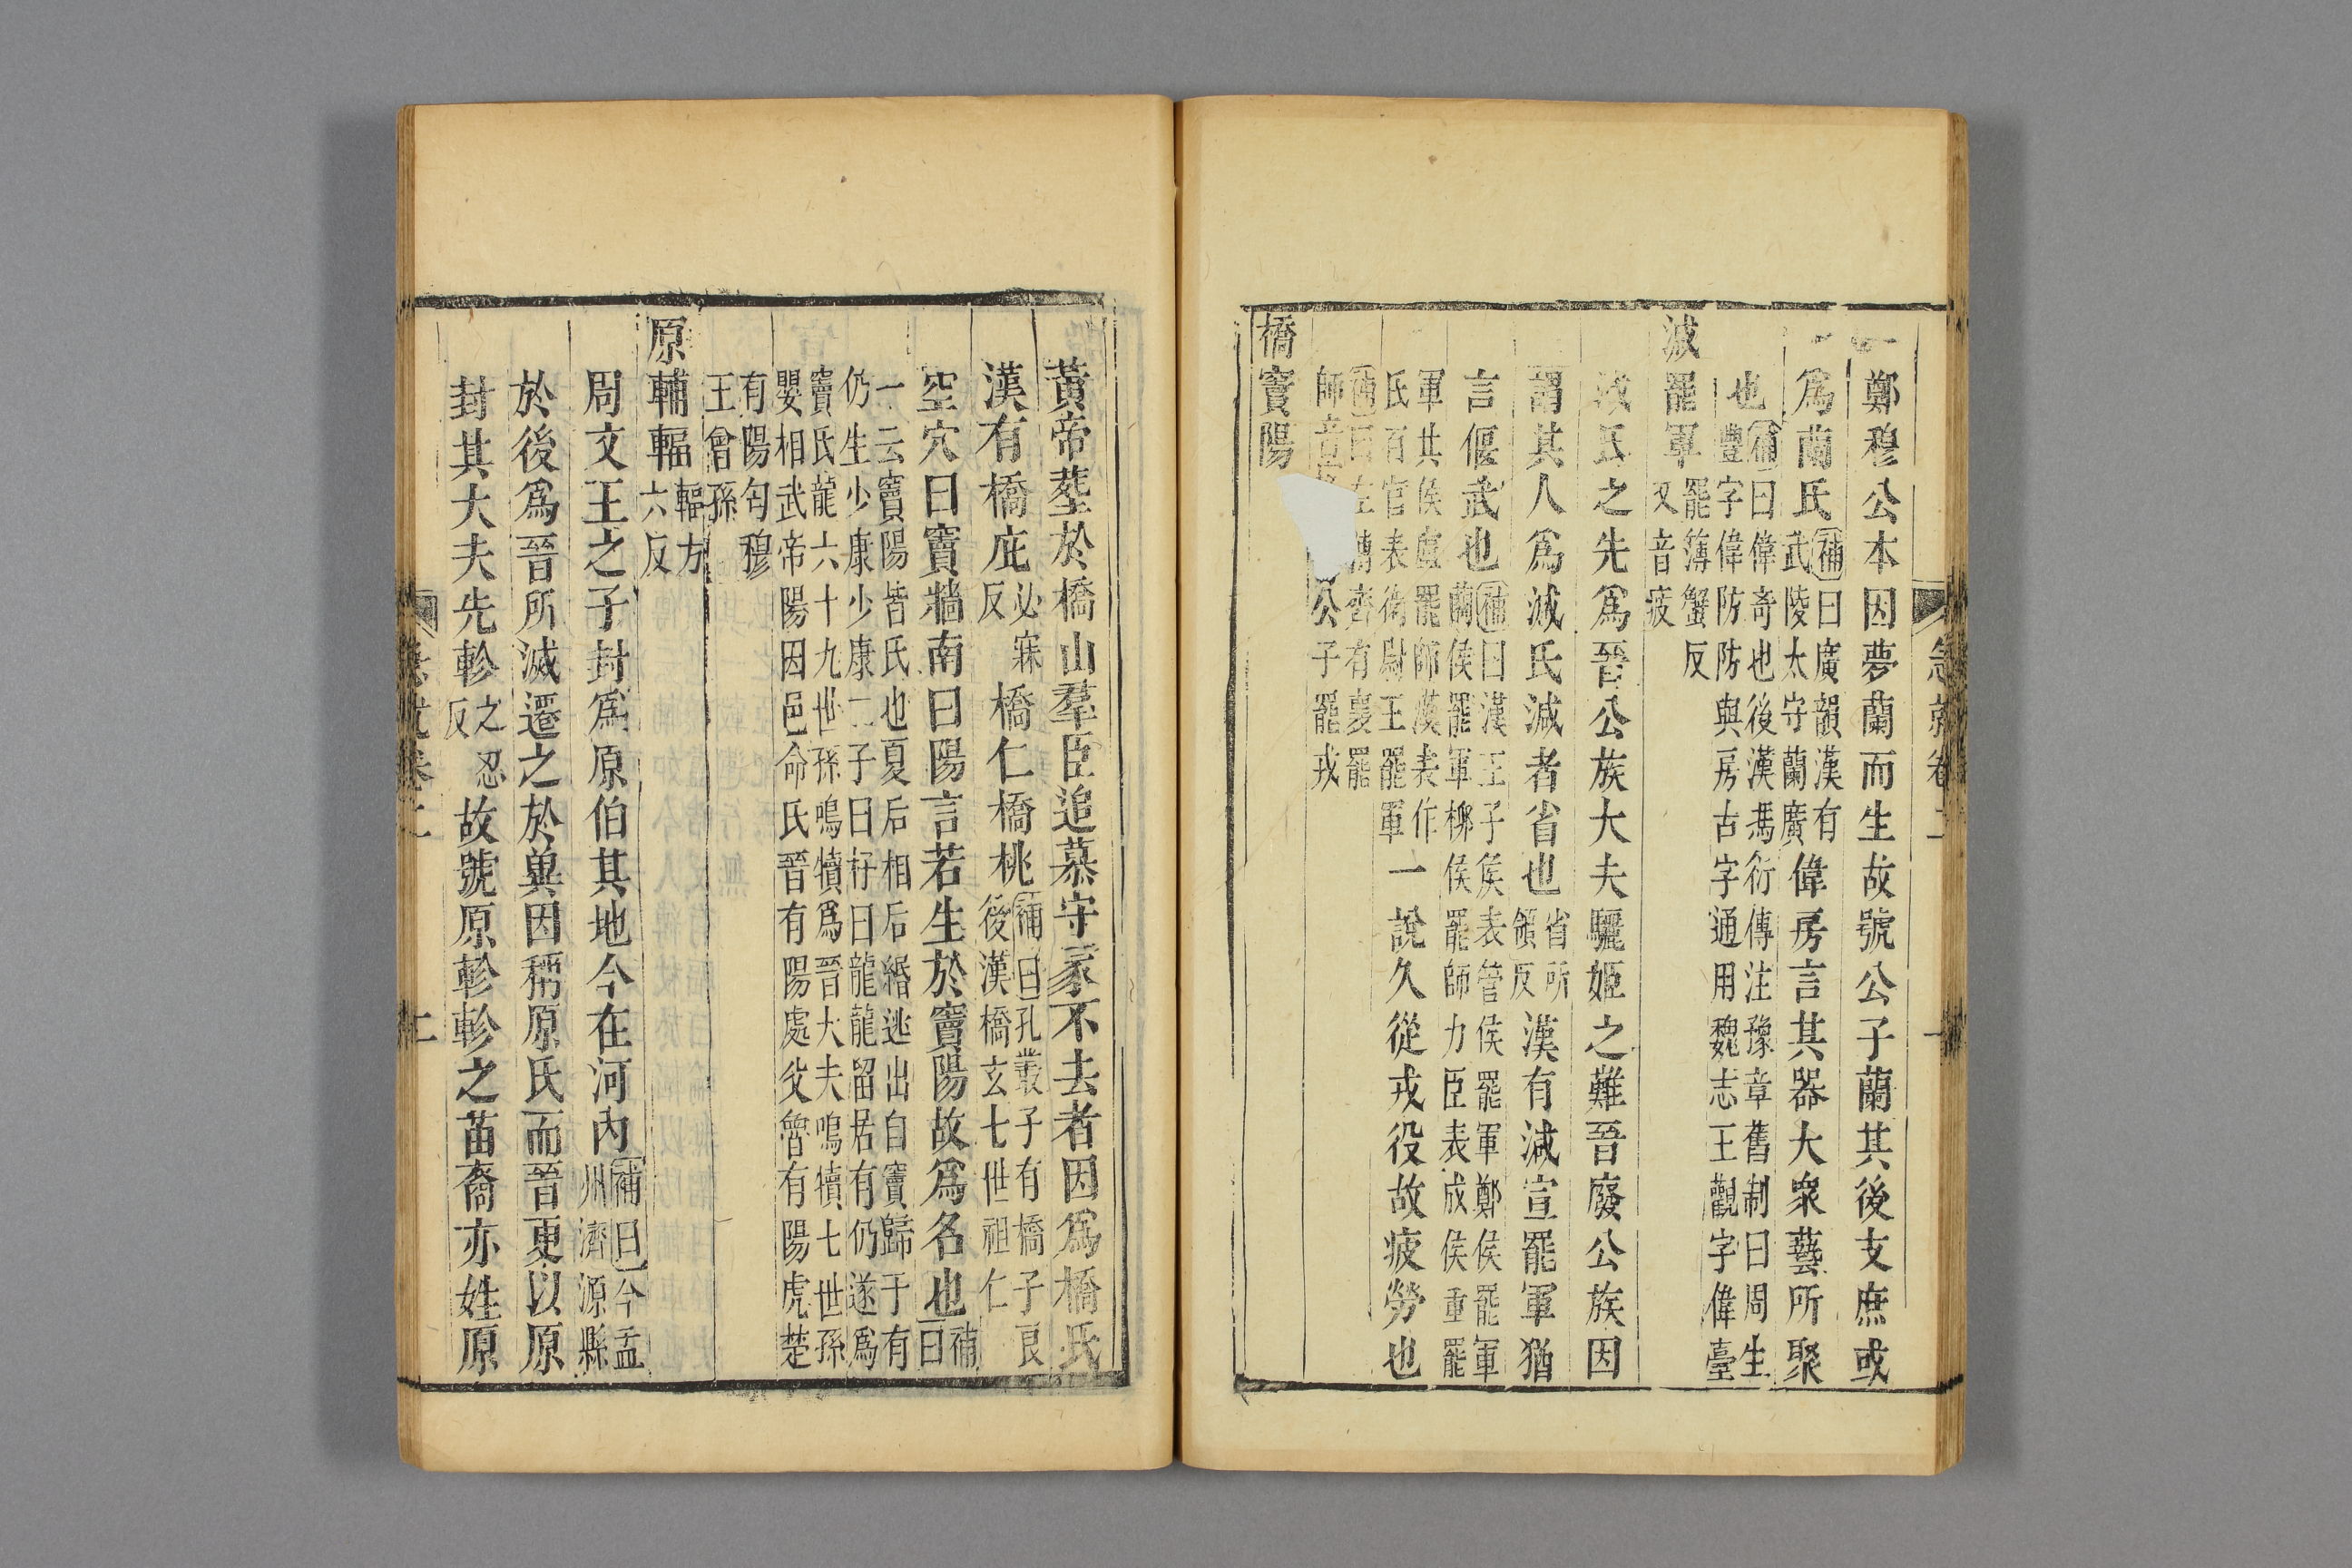 急就卷二　一
鄭穆公本因夢蘭而生故號公子蘭其後支庶或
爲蘭氏補曰廣韻漢有武陵太守蘭廣偉房言其器大衆藝所聚
也補曰偉奇也後漢馮衍傳注豫章舊制曰周生豐字偉防防與房古字通用魏志王觀字偉臺
減罷軍罷簿蟹反又音疲
減氏之先爲晉公族大夫驪姬之難晉廢公族因
謂其人爲減氏減者省也省所領反漢有減宣罷軍猶
言偃武也補曰漢王子侯表管侯罷軍鄭侯罷軍蘭侯罷軍梛侯罷師力臣表成侯重罷
軍共侯盧罷師漢表作氏百官表衛尉王罷軍一說久從戎役故疲勞也
補曰左傳齊有裏罷師章公子罷戎
橋竇陽
黃帝塟於橋山羣臣追慕守冢不去者因爲橋氏
漢有橋庇必寐反橋仁橋桃補曰孔叢子有橋子良後漢橋玄七世祖仁
空穴曰竇牆南曰陽言若生於竇陽故爲名也補曰
一云竇陽皆氏也夏后相后緡逃出自竇歸于有仍生少康少康二子曰杼曰龍龍留居有仍遂爲
竇氏龍六十九世孫鳴犢爲晉大夫鳴犢七世孫嬰相武帝陽因邑命氏晉有陽處父魯有陽虎楚
有陽匄穆王曾孫
原輔輻輻方六反
周文王之子封爲原伯其地今在河內補曰今孟州濟源縣
於後爲晉所滅遷之於兾因稱原氏而晉更以原
封其大夫先軫之忍反故號原軫軫之苗裔亦姓原
急就卷二　二